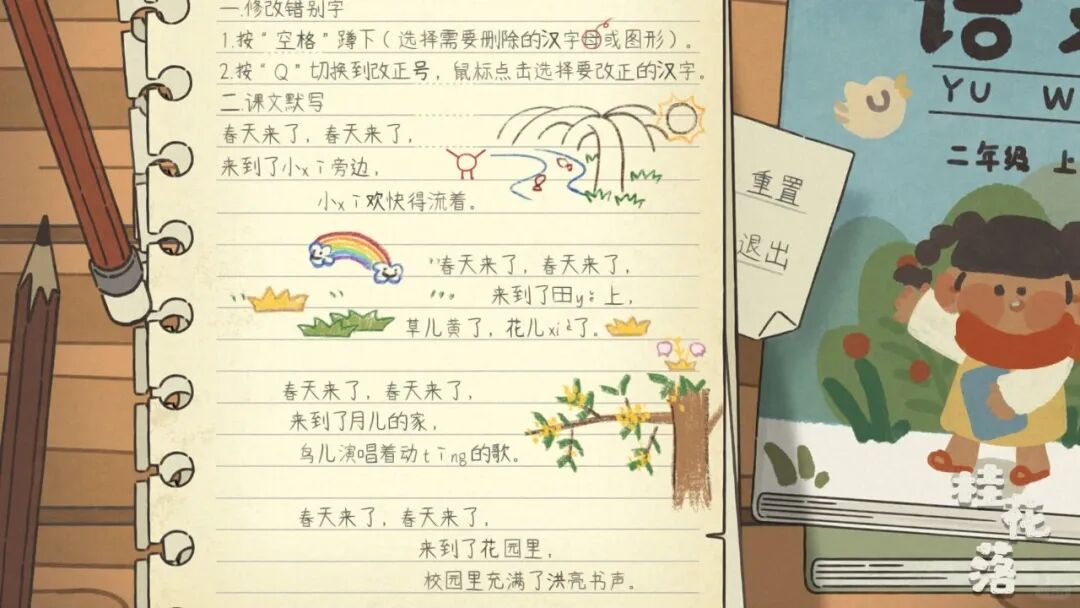 一.修改错别字
1.按“空格”蹲下(选择需要删除的汉字母或图形)。
2.按“Q”切换到改正号，鼠标点击选择要改正的汉字。
二.课文默写
春天来了，春天来了，
来到了小xī旁边，
小xī欢快得流着。
春天来了，春天来了，
来到了田yě上，
草儿黄了，花儿xiè了。
春天来了，春天来了，
来到了月儿的家，
鸟儿演唱着动tīng的歌。
春天来了，春天来了，
来到了花园里，
校园里充满了洪亮书声。
重置
退出
语
YU W
二年级 上
U
桂花落